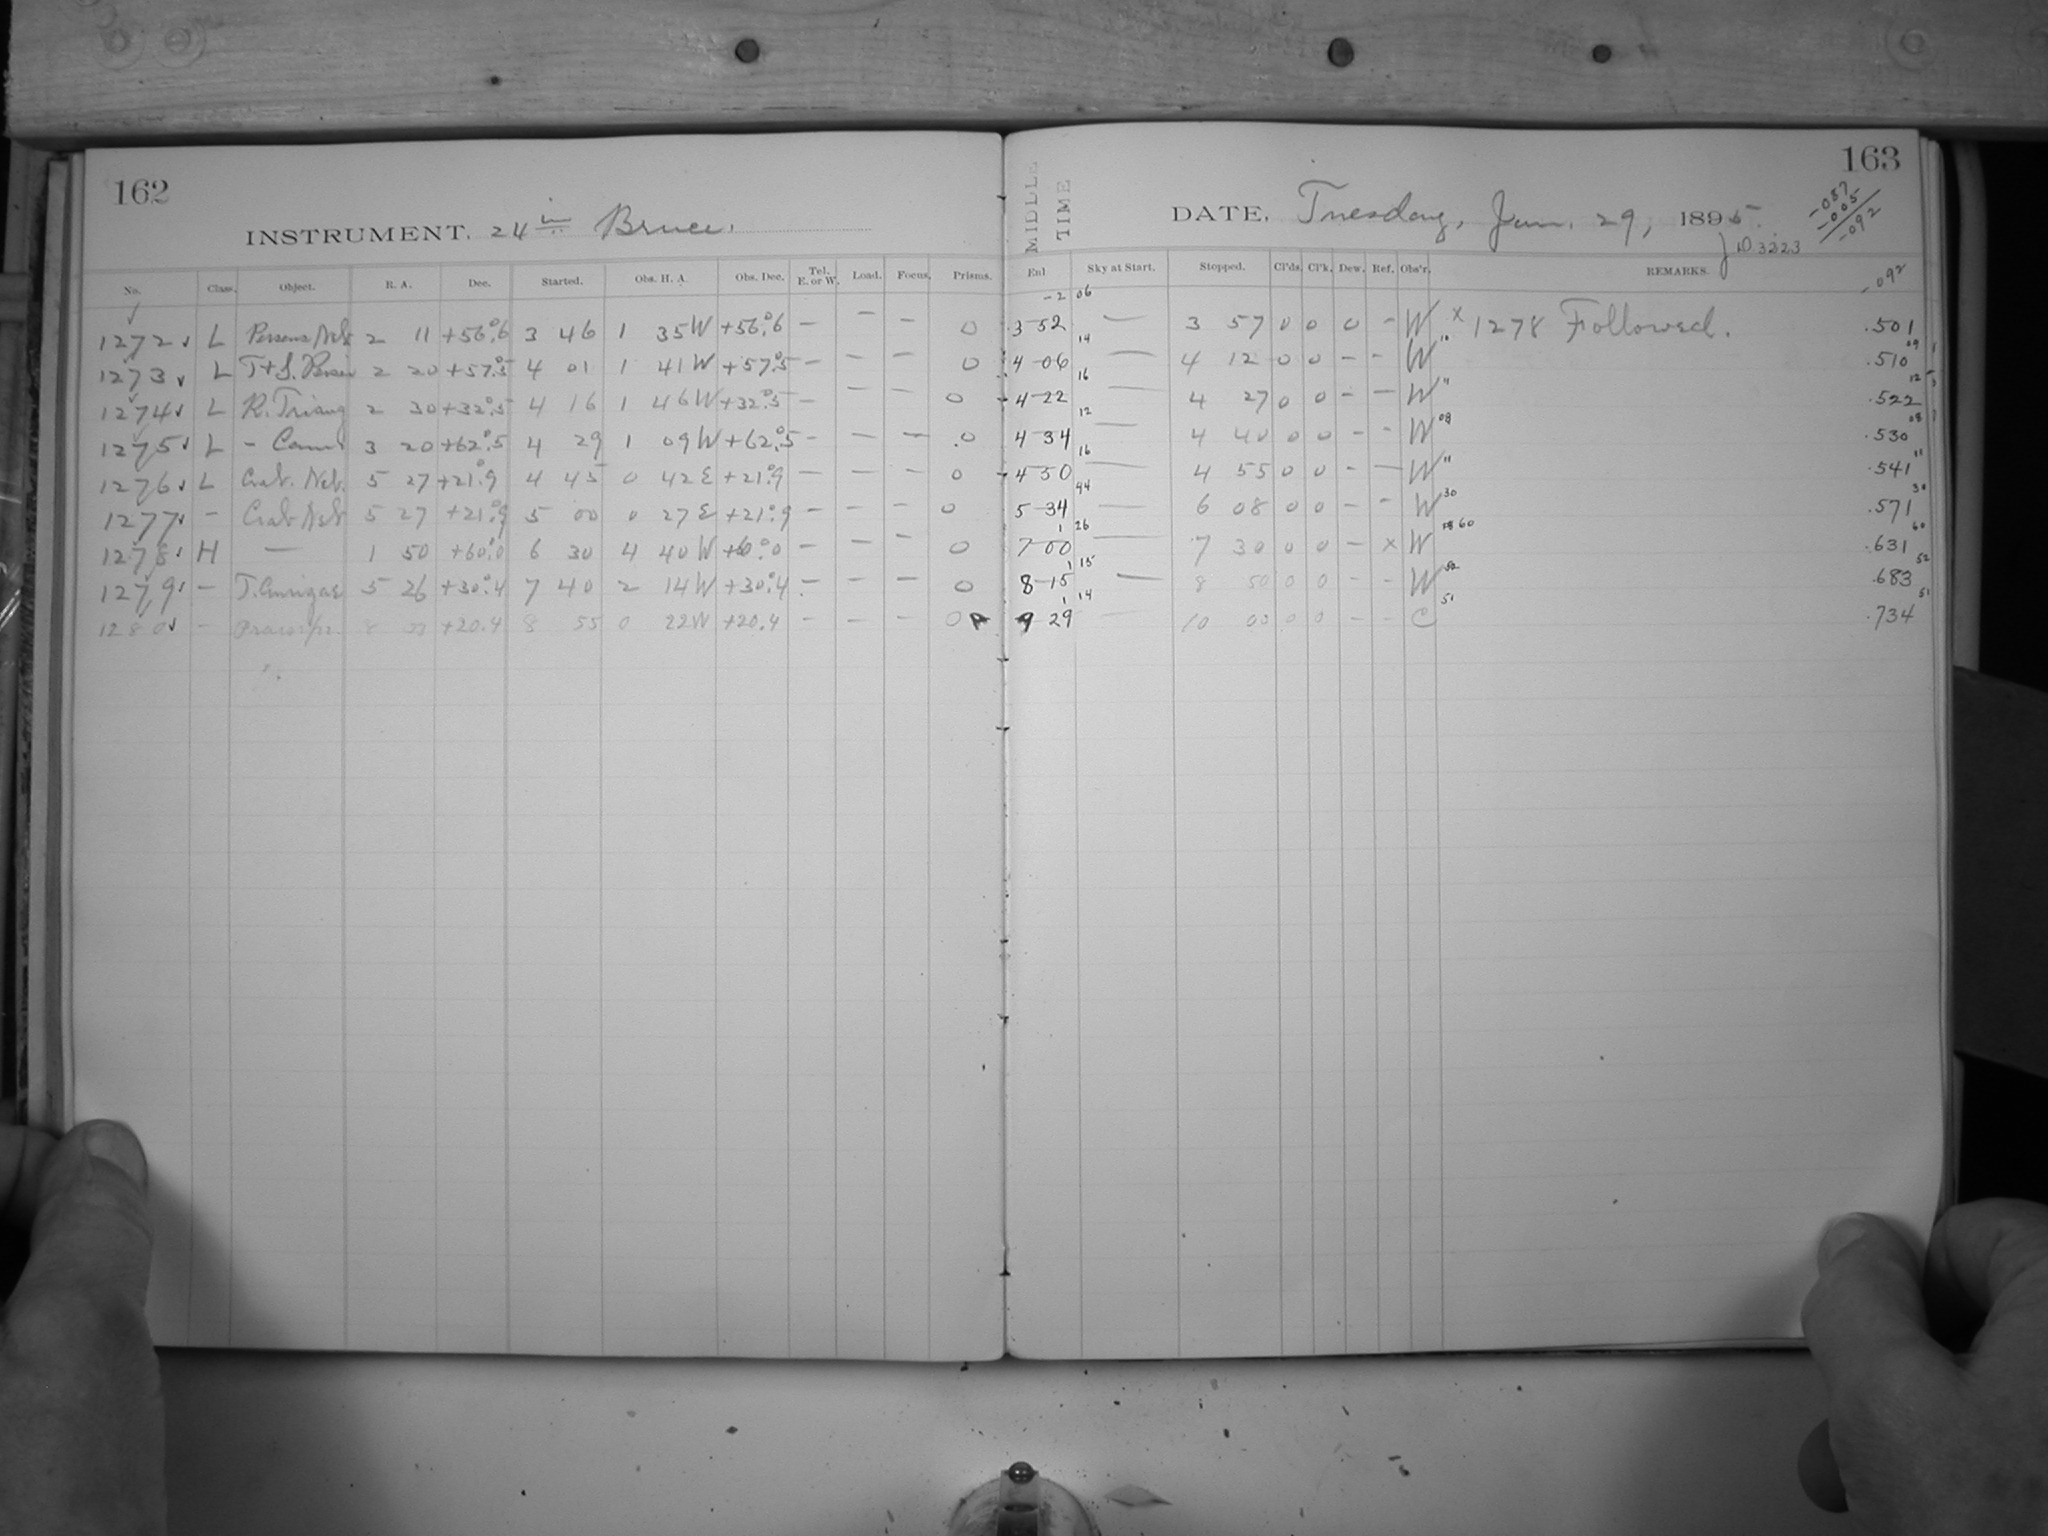 162
INSTRUMENT. 24 in Bruce.
No. Class. Object. R. A. Dec. Started. Obs. H. A. Obs. Dec. Tel. E. or W. Load. Focus. Prisms.
1272 L Perseus Neb 2 11 +56°.6 3 46 1 35 W +56°.6 — — — 0
1273 L T+S. Persei 2 20 +57°.5 4 01 1 41 W +57°.5 — — — 0
1274 L R. Triang 2 30 +32°.5 4 16 1 46 W +32°.5 — — — 0
1275 L - Cam 3 20 +62°.5 4 29 1 09 W +62°.5 — — — 0
1276 L Crab. Neb. 5 27 +21°.9 4 45 0 42 E +21°.9 — — — 0
1277 - Crab Neb 5 27 +21°.9 5 00 0 27 E +21°.9 — — — 0
1278 H — 1 50 +60°.0 6 30 4 40 W +60°.0 — — — 0
1279 - T. Aurigae 5 26 +30°.4 7 40 2 14 W +30°.4 — — — 0
1280 - 8 +20.4 8 55 0 22 W +20.4 - - - 0
163
MIDDLE TIME
DATE. Tuesday, Jan. 29, 1895.
J.D. 3223
-087
-005
-092
Sky at Start. Stopped. Cl'ds. Cl'k. Dew. Ref. Obs'r. REMARKS.
-2 06 -092
3-52 — 3 57 0 0 0 - W x 1278 Followed. .501
14 10 09
4-06 — 4 12 0 0 - - W .510
16 12
4-22 — 4 27 0 0 - - W " .522
12 08 08
4-34 — 4 40 0 0 - - W .530
16 11
4-50 — 4 55 0 0 - - W " .541
44 30 30
5-34 — 6 08 0 0 - - W .571
1 26 60 60
7-00 — 7 30 0 0 - x W .631
1 15 52 52
8-15 — 8 50 0 0 - - W .683
1 14 51 51
9 29 — 10 00 0 0 - - C .734